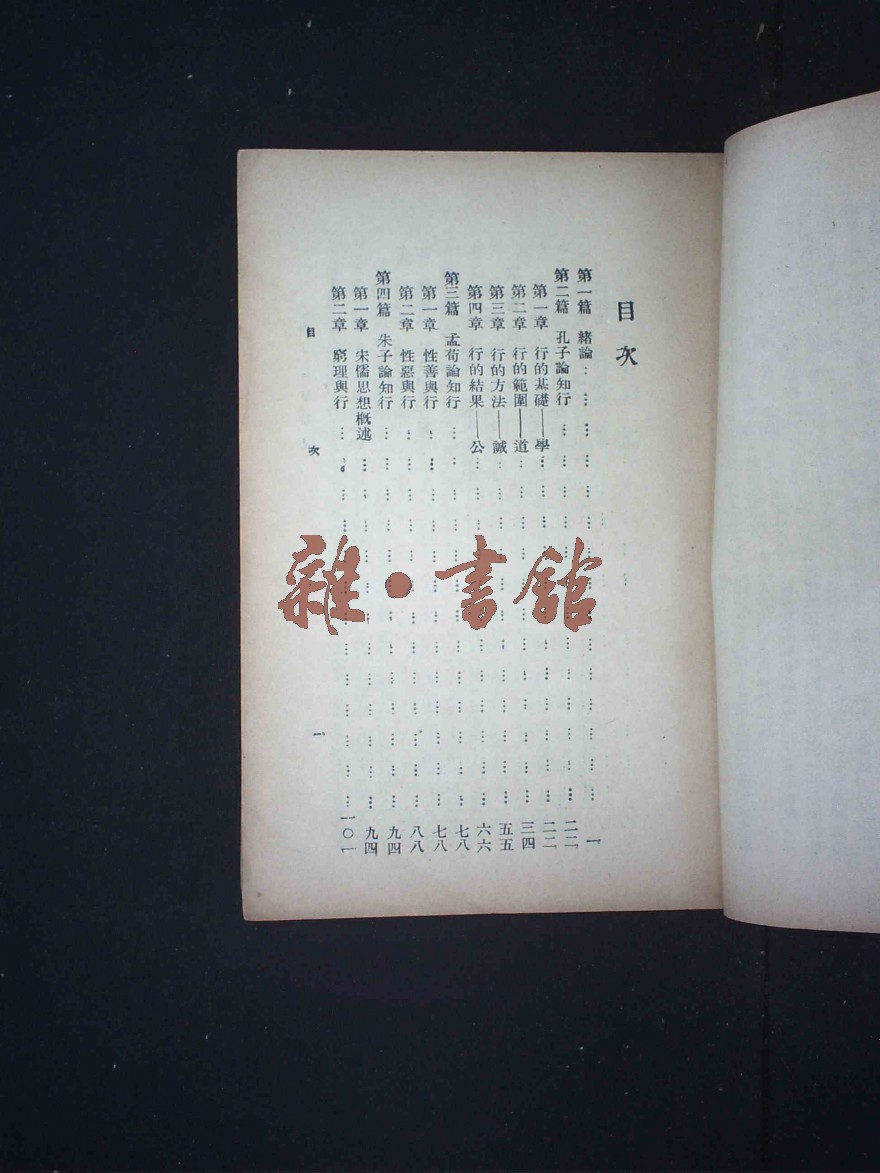 目次
第一篇　緒論………………………………一
第二篇　孔子論知行………………………………二二
第一章　行的基礎——學………………………………二二
第二章　行的範圍——道………………………………三四
第三章　行的方法——誠………………………………五五
第四章　行的結果——公………………………………六六
第三篇　孟荀論知行………………………………七八
第一章　性善與行………………………………七八
第二章　性惡與行………………………………八八
第四篇　朱子論知行………………………………九四
第一章　宋儒思想概述………………………………九四
第二章　窮理與行………………………………一〇一
目次　一
雜·書館